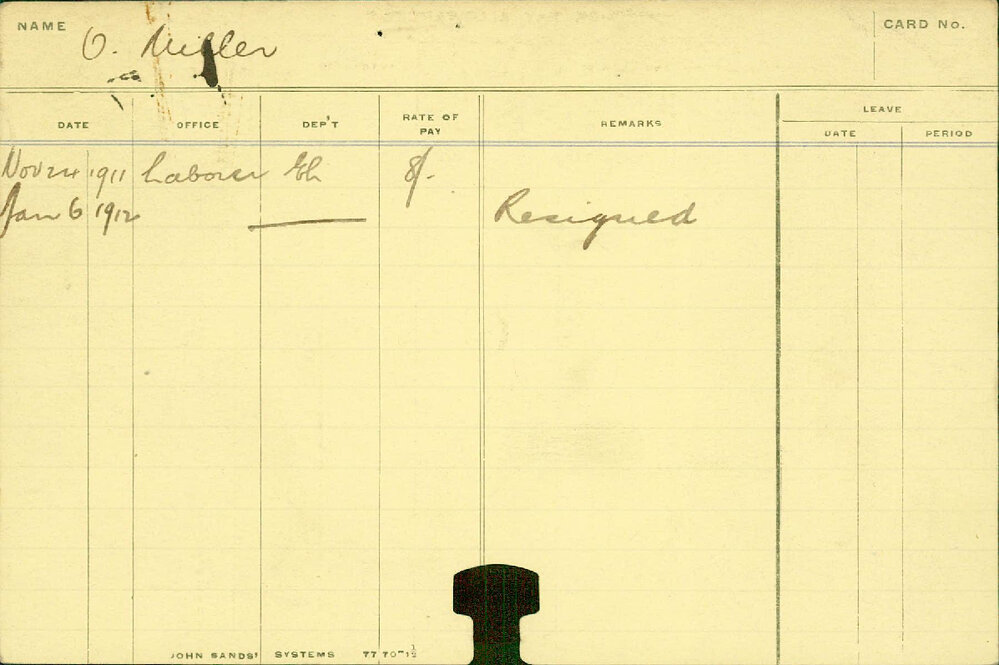 NAME O. Miller CARD No.
LEAVE
DATE OFFICE DEP'T RATE OF PAY REMARKS DATE PERIOD
Nov 24 1911 Laborer 8/-
Jan 6 1912 Resigned
JOHN SANDS' SYSTEMS